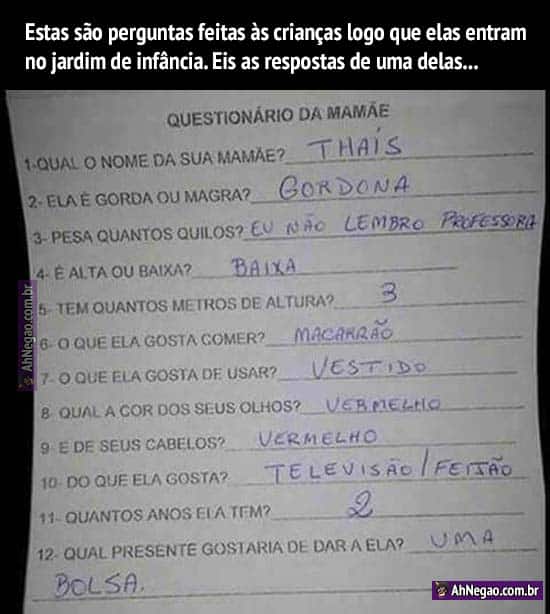 Estas são perguntas feitas às crianças logo que elas entram
no jardim de infância. Eis as respostas de uma delas...
QUESTIONÁRIO DA MAMÃE
1-QUAL O NOME DA SUA MAMÃE? THAÍS
2- ELA É GORDA OU MAGRA? GORDONA
3- PESA QUANTOS QUILOS? EU NÃO LEMBRO PROFESSORA
4- É ALTA OU BAIXA? BAIXA
5- TEM QUANTOS METROS DE ALTURA? 3
6- O QUE ELA GOSTA COMER? MACARRÃO
7- O QUE ELA GOSTA DE USAR? VESTIDO
8- QUAL A COR DOS SEUS OLHOS? VERMELHO
9- E DE SEUS CABELOS? VERMELHO
10- DO QUE ELA GOSTA? TELEVISÃO/FEIJÃO
11- QUANTOS ANOS ELA TEM? 2
12- QUAL PRESENTE GOSTARIA DE DAR A ELA? UMA
BOLSA.
AhNegao.com.br
AhNegao.com.br